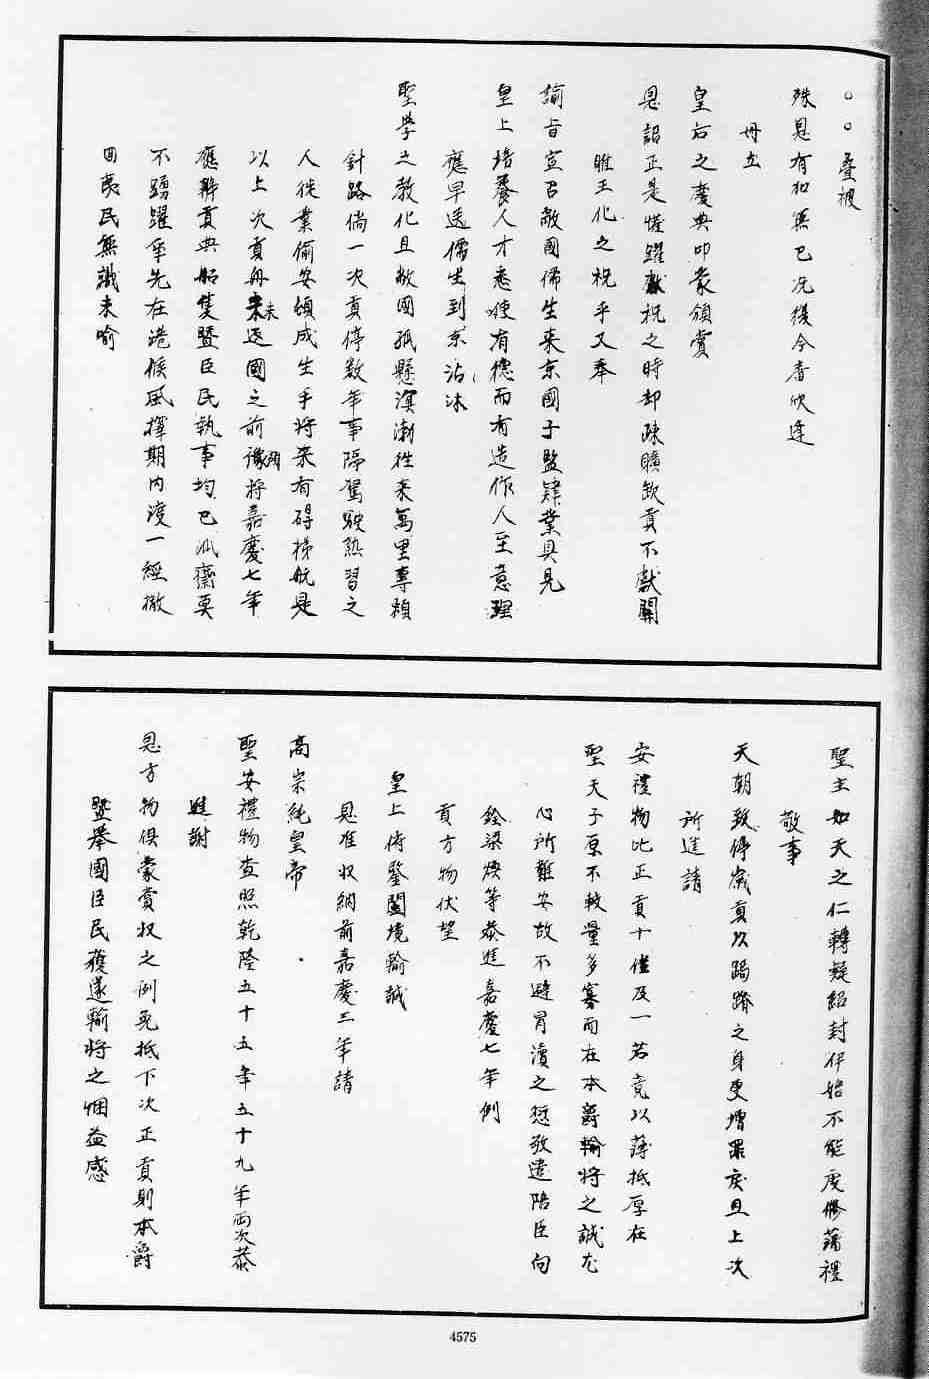 ○○疊被
殊恩有加無已况復今春欣逢
冊立
皇后之慶典叩蒙頒賞
恩詔正是懽躍獻祝之時却疎曠欽貢不獻關
睢王化之祝乎又奉
諭旨宣召敝國儒生来京國子監肄業具見
皇上培養人才悉使有德而有造作人至意理
應早送儒生到京沾沐
聖學之教化且敝國孤懸溟渤徃来萬里專賴
針路倘一次貢停数年事隔駕駛熟習之
人徙業偷安頓成生手將来有碍梯航是
以上次貢舟未返國之前豫將嘉慶七年
應辨貢典船隻曁臣民執事均已派齊莫
不踴躍爭先在港候風擇期内渡一經撤
回夷民無識未喻
聖主如天之仁轉疑紹封伊始不能虔修藩禮
敬事
天朝致停歲貢以跼蹐之身更增罪戾且上次
所進請
安禮物比正貢十僅及一若竟以薄抵厚在
聖天子原不較量多寡而在本爵輸將之誠尤
心所難安故不避冒瀆之愆敬遣陪臣向
銓梁煥等恭進嘉慶七年例
貢方物伏望
皇上俯鑒闔境輸誠
恩准収納前嘉慶三年請
高宗純皇帝
聖安禮物查照乾隆五十五年五十九年兩次恭
進謝
恩方物俱蒙賞収之例免抵下次正貢則本爵
曁舉國臣民獲遂輸將之悃益感
4575